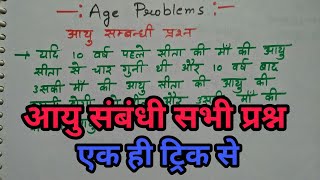 :- Age Problems :-
आयु सम्बन्धी प्रश्न
→ यदि 10 वर्ष पहले सीता की माँ की आयु
सीता से चार गुनी थी और 10 वर्ष बाद
उसकी माँ की आयु सीता की आयु की
आयु संबंधी सभी प्रश्न
एक ही ट्रिक से